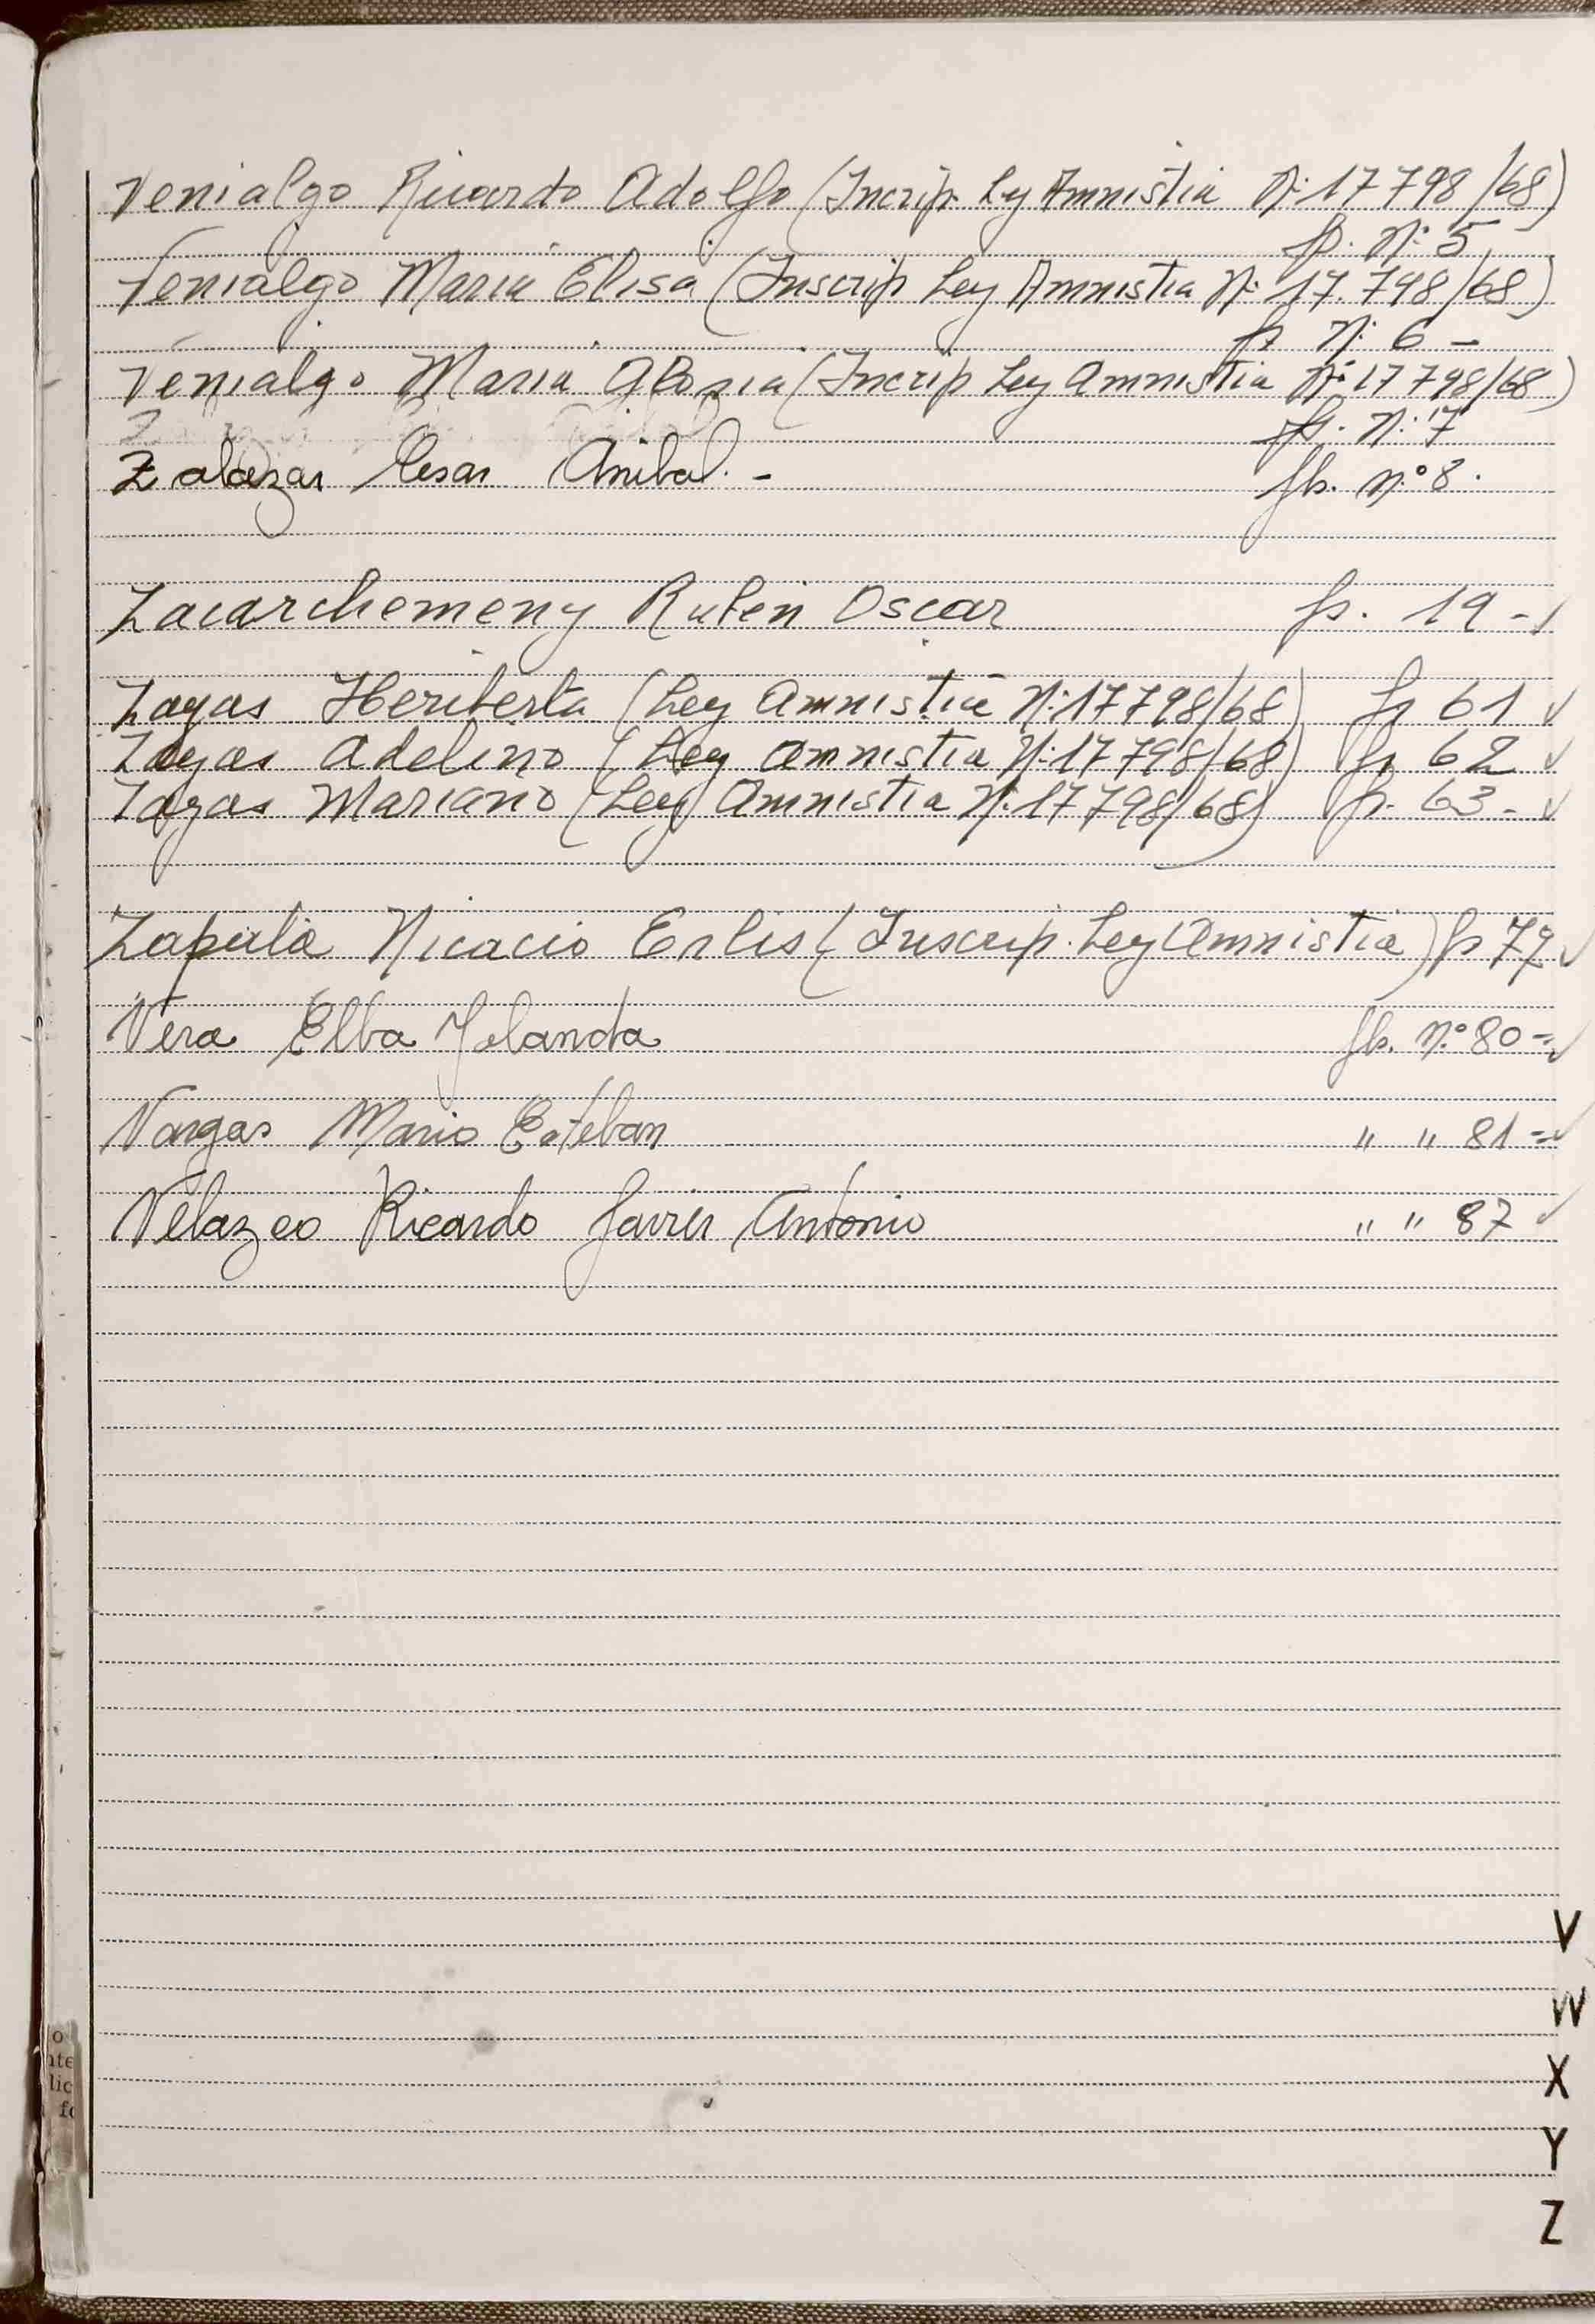 Venialgo Ricardo Adolfo (Incrip. Ley Amnistia Nº 17798/68)
fs. Nº 5
Venialgo Maria Elisa (Inscrip Ley Amnistia Nº 17.798/68)
fs Nº 6 -
Venialgo Maria Gloria (Incrip Ley Amnistia Nº 17798/68)
fs. Nº 7
Zalazar Cesar Anibal. - fls. nº 8.
Zacarchemeny Ruben Oscar fs. 19 -
Zayas Heriberta (Ley Amnistia Nº 17798/68) fs 61
Zayas Adelino (Ley Amnistia Nº 17798/68) fs 62
Zayas Mariano (Ley Amnistia Nº 17798/68) fs. 63 -
Nicacio (Inscrip. Ley Amnistia) fs
Vera Elba Yolanda fls. nº 80 =
Vargas Mario Esteban " " 81 =
Velazco Ricardo Javier Antonio " " 87
V
W
X
Y
Z